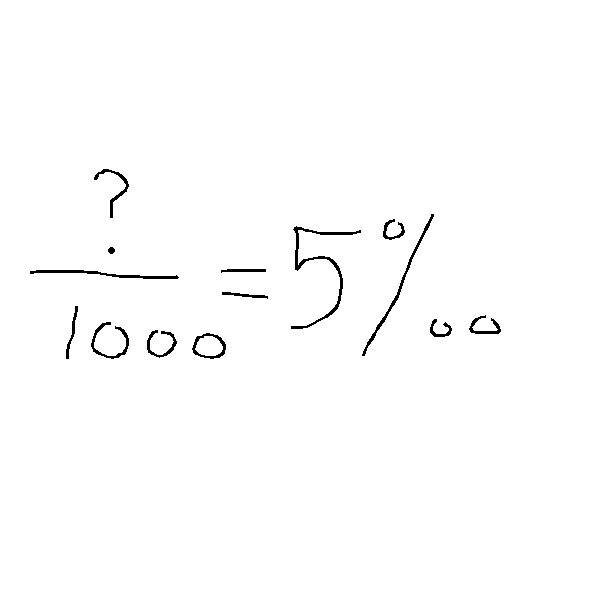 ?/1000 = 5‰